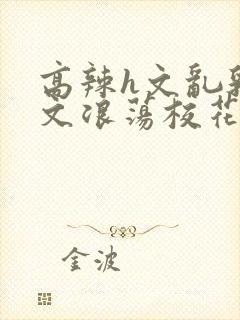 高辣h文乱乳
文浪荡校花
金波